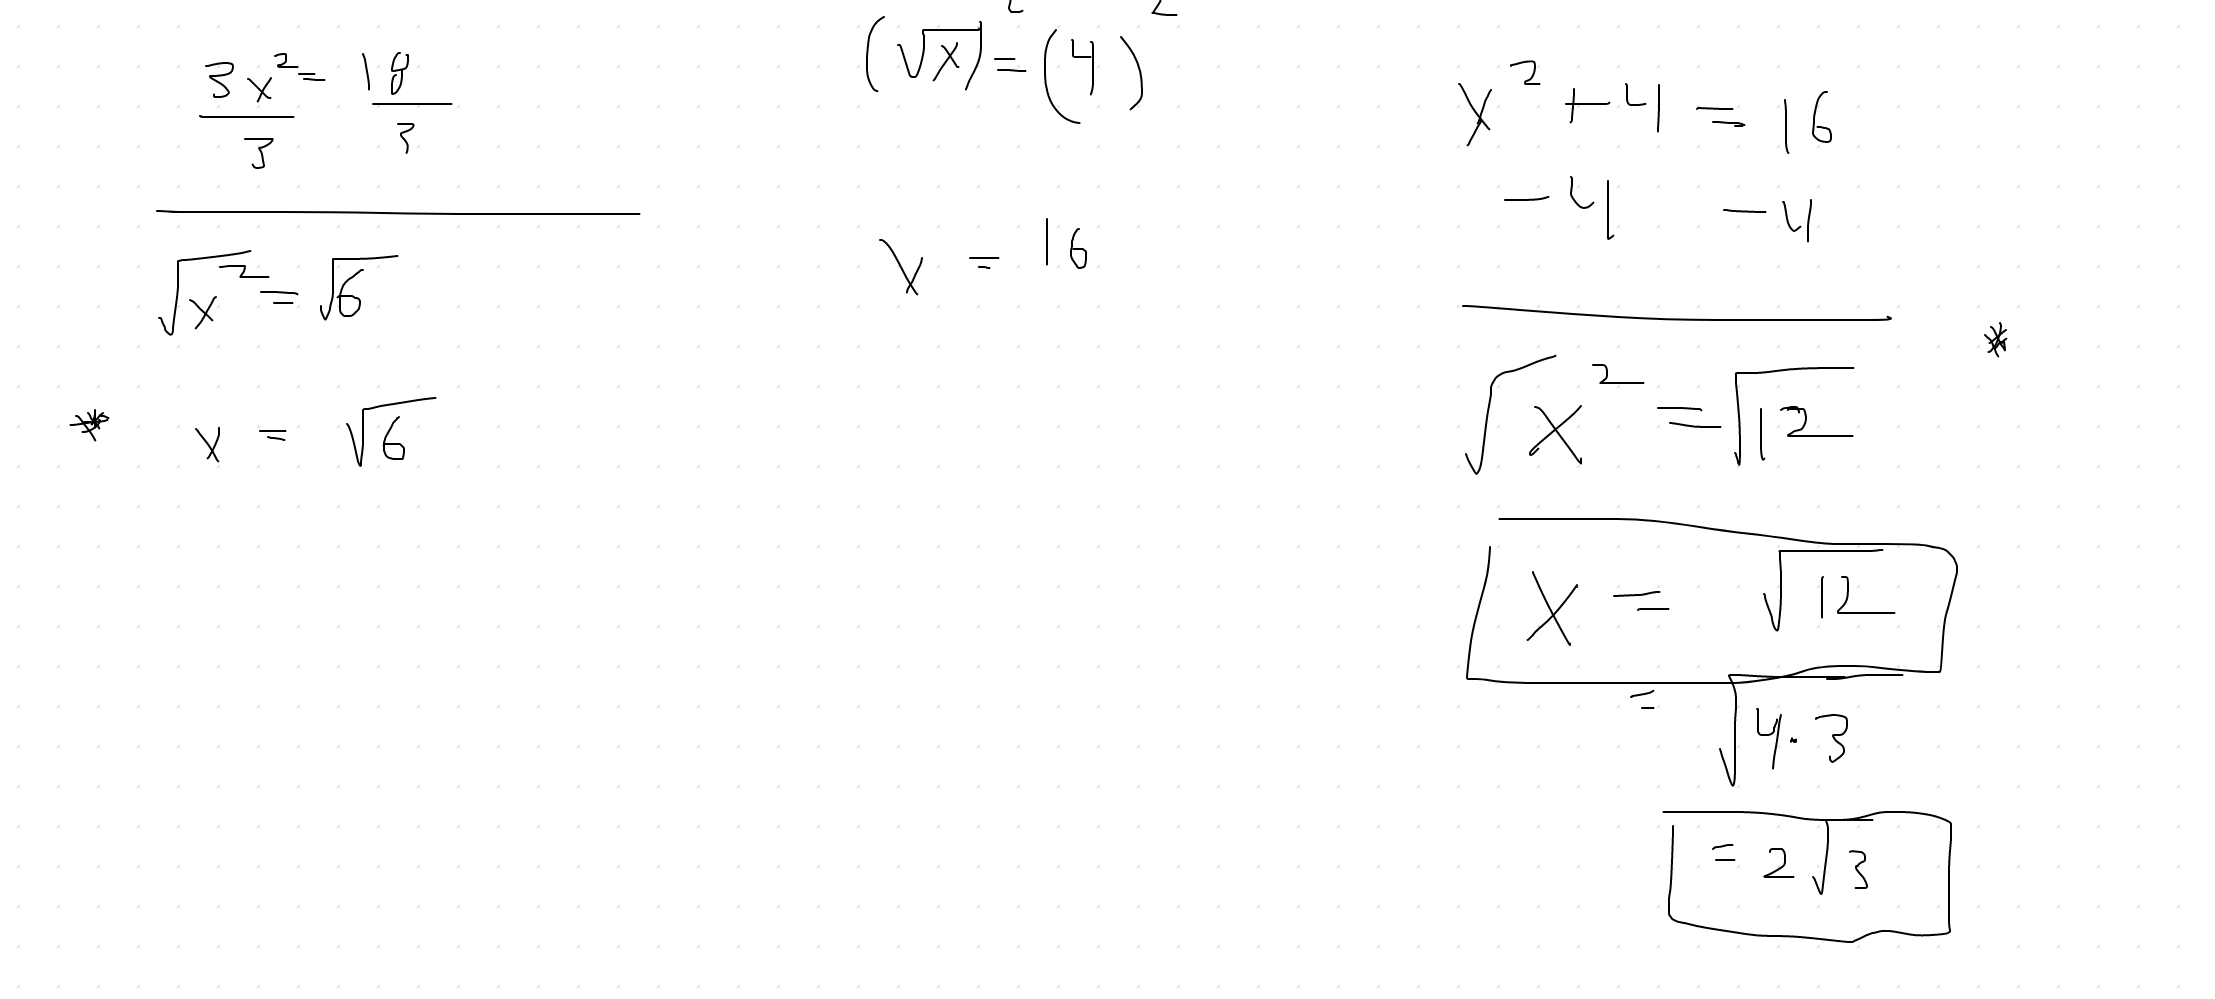 3x² = 18
3 3
√x² = √6
* x = √6
(√x)² = (4)²
x = 16
x² + 4 = 16
- 4 - 4
*
√x² = √12
x = √12
= √4·3
= 2√3